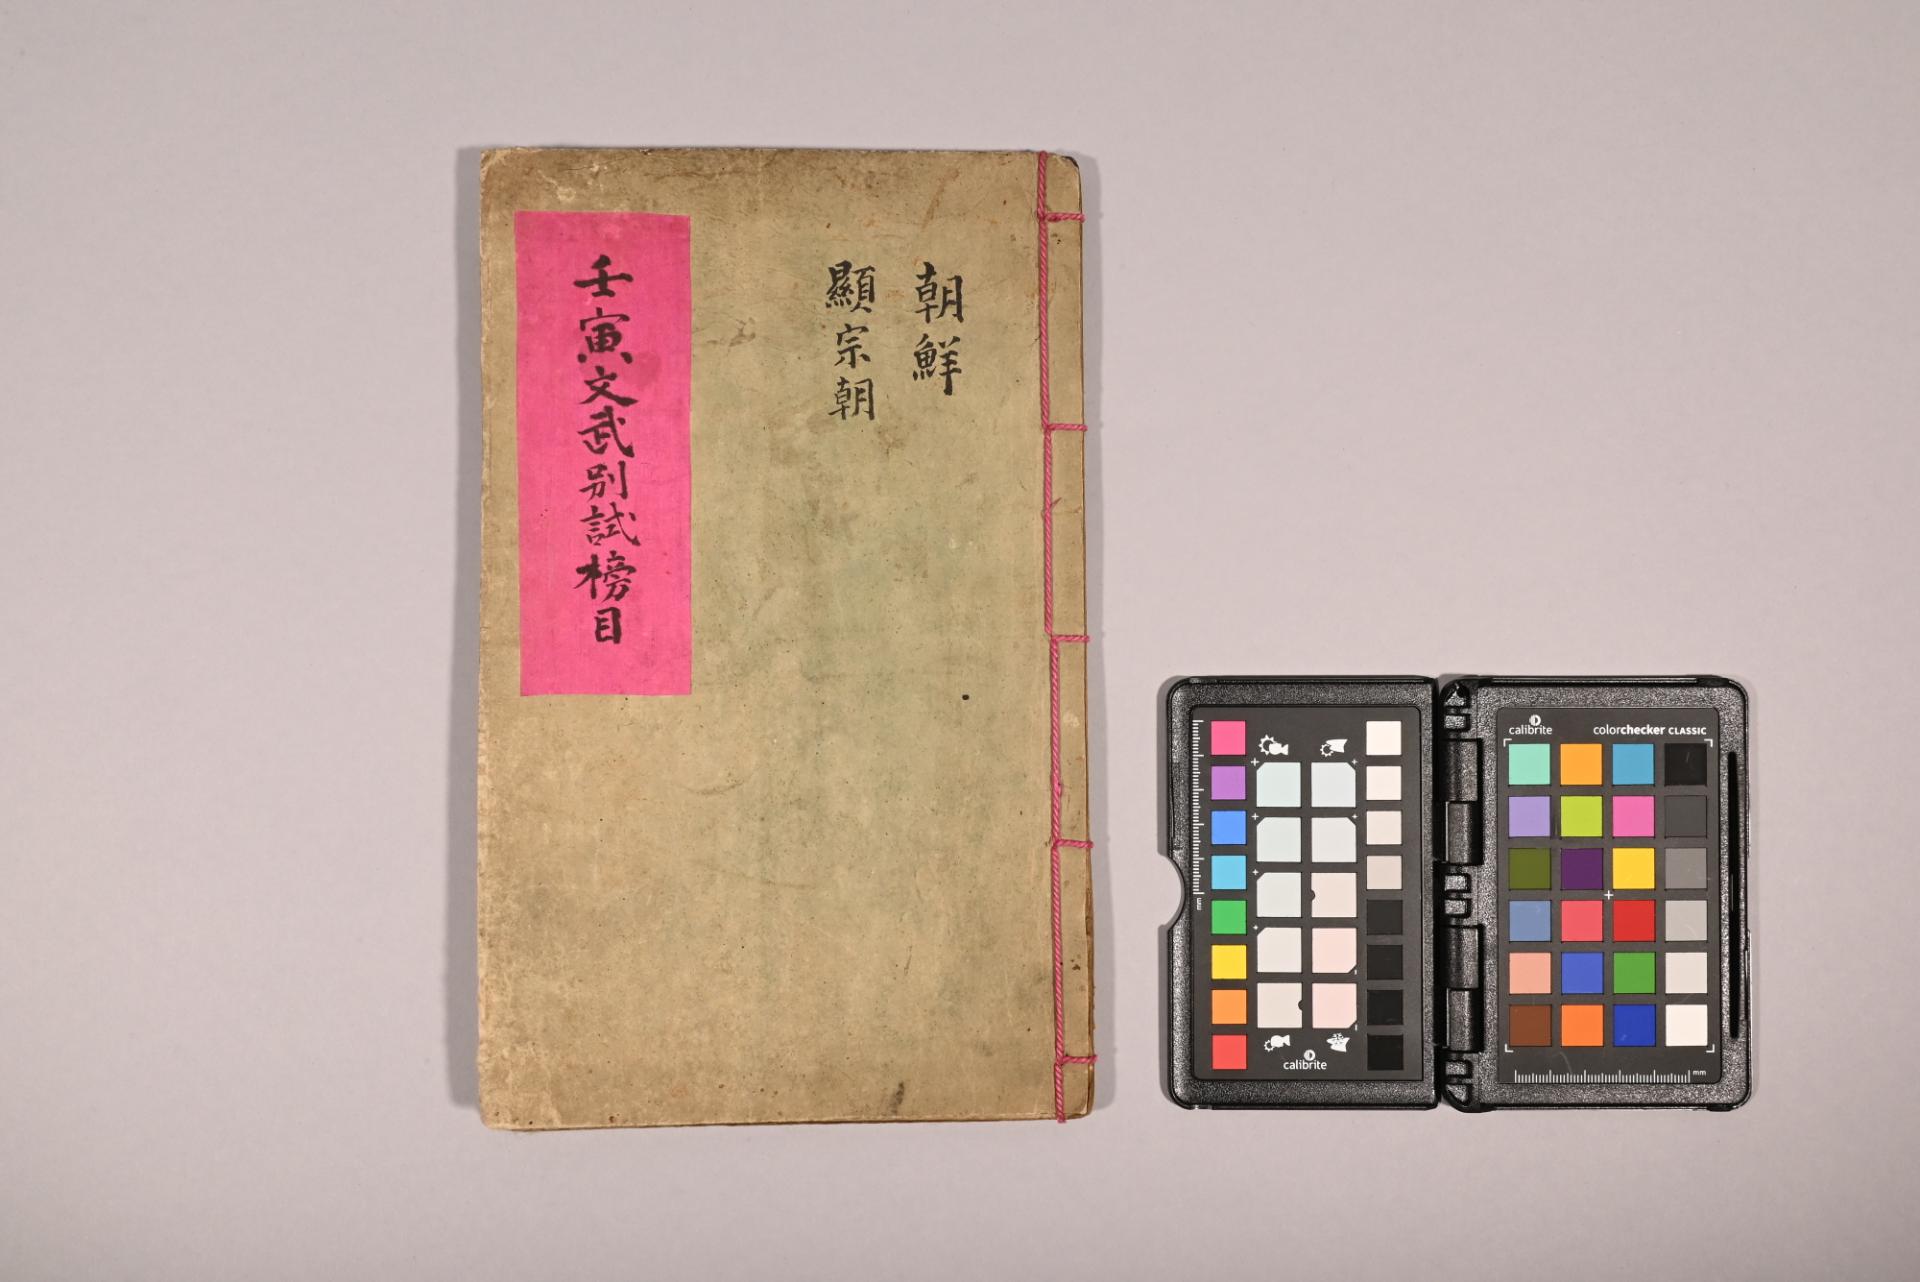 朝鮮
顯宗朝
壬寅文武別試榜目
calibrite
colorchecker CLASSIC
mm
calibrite
mm